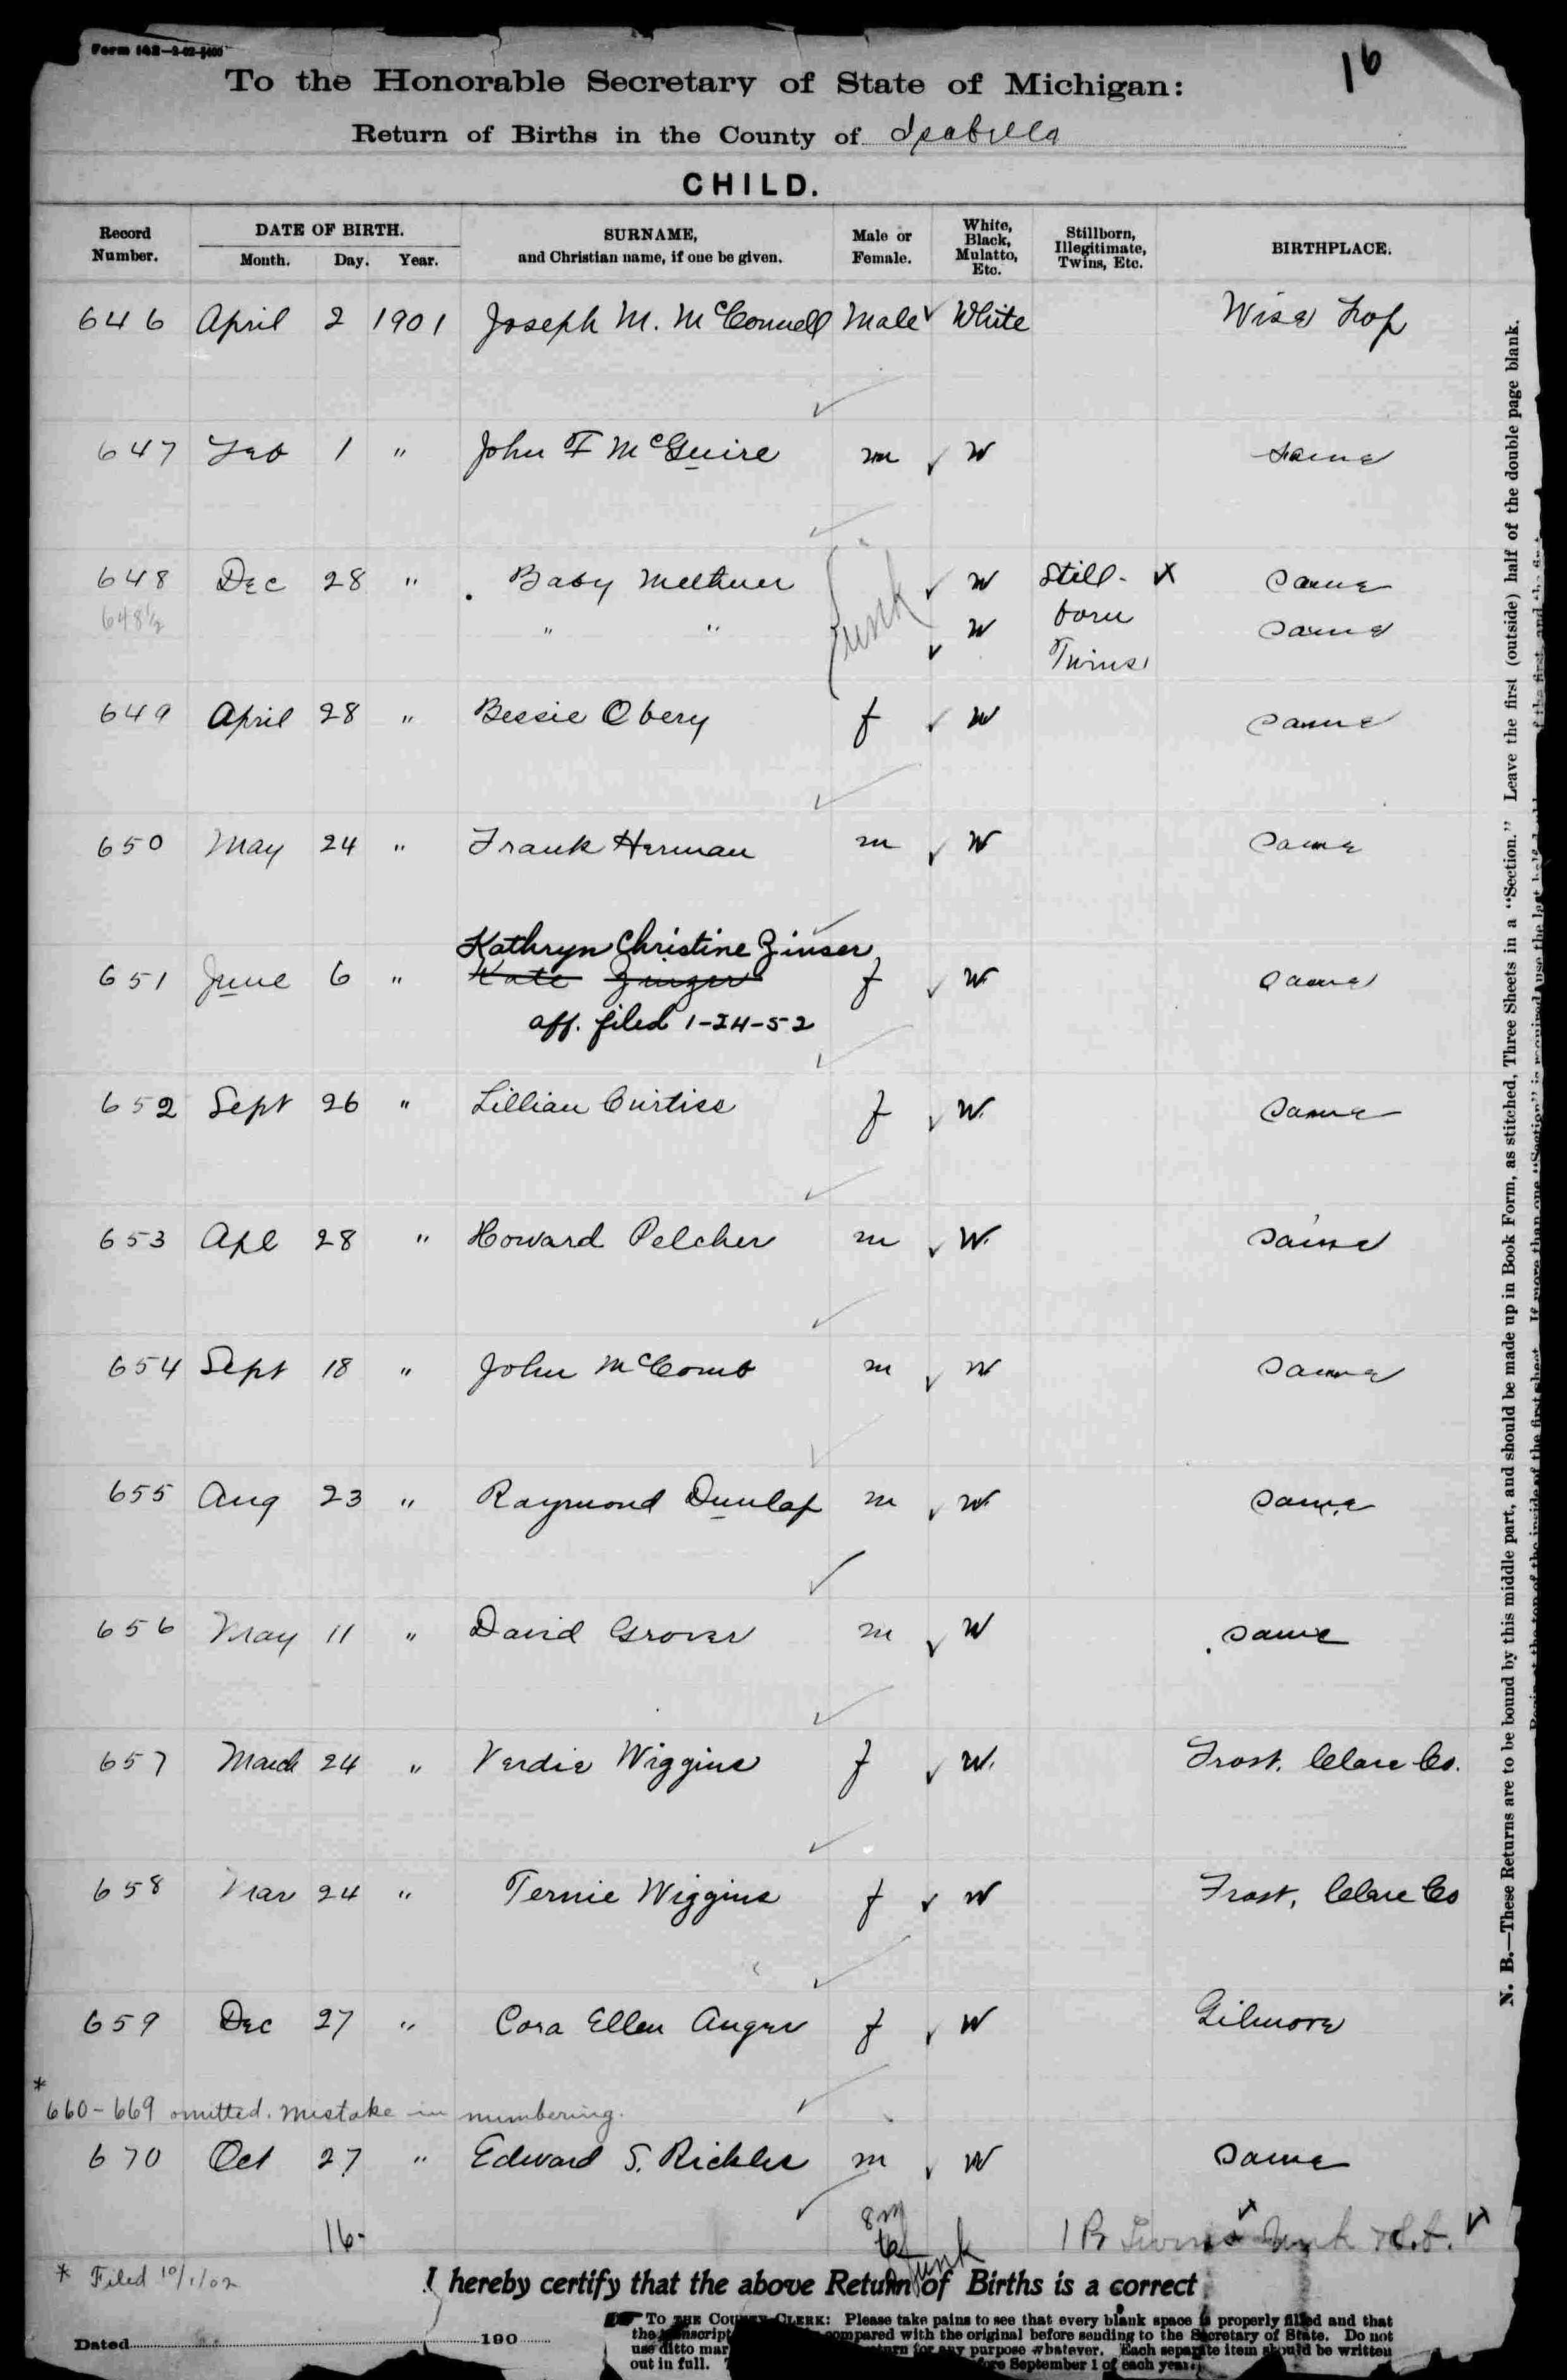 Form 142—2-02-5400
16
To the Honorable Secretary of State of Michigan:
Return of Births in the County of Isabella
CHILD.
Record Number. DATE OF BIRTH. Month. Day. Year. SURNAME, and Christian name, if one be given. Male or Female. White, Black, Mulatto, Etc. Stillborn, Illegitimate, Twins, Etc. BIRTHPLACE.
646 April 2 1901 Joseph M. McConnell Male ✓ White Wise Top
647 Feb 1 " John F McGuire m ✓ W same
648 Dec 28 " Baby Methner unk ✓ W Still- x same
648½ " " ✓ W born same
Twins
649 April 28 " Bessie Obery f ✓ W same
650 May 24 " Frank Herman m ✓ W same
Kathryn Christine Zinser
651 June 6 " Kate Zinger f ✓ W same
aff. filed 1-24-52
652 Sept 26 " Lillian Curtiss f ✓ W. same
653 Apl 28 " Howard Pelcher m ✓ W. same
654 Sept 18 " John McComb m ✓ W same
655 Aug 23 " Raymond Dunlap m ✓ W. same
656 May 11 " David Grover m ✓ W same
657 March 24 " Verdie Wiggins f ✓ W. Frost, Clare Co.
658 Mar 24 " Ternie Wiggins f ✓ W Frost, Clare Co
659 Dec 27 " Cora Ellen Anger f ✓ W Gilmore
* 660-669 omitted. Mistake in numbering.
670 Oct 27 " Edward S. Rickler m ✓ W same
16- 8m 1 Pr Twins unk
6f unk
* Filed 10/1/02
I hereby certify that the above Return of Births is a correct
TO THE COUNTY CLERK: Please take pains to see that every blank space is properly filled and that
the transcript compared with the original before sending to the Secretary of State. Do not
use ditto mar return for any purpose whatever. Each separate item should be written
out in full. before September 1 of each year.
Dated 190
N. B.—These Returns are to be bound by this middle part, and should be made up in Book Form, as stitched, Three Sheets in a "Section." Leave the first (outside) half of the double page blank.